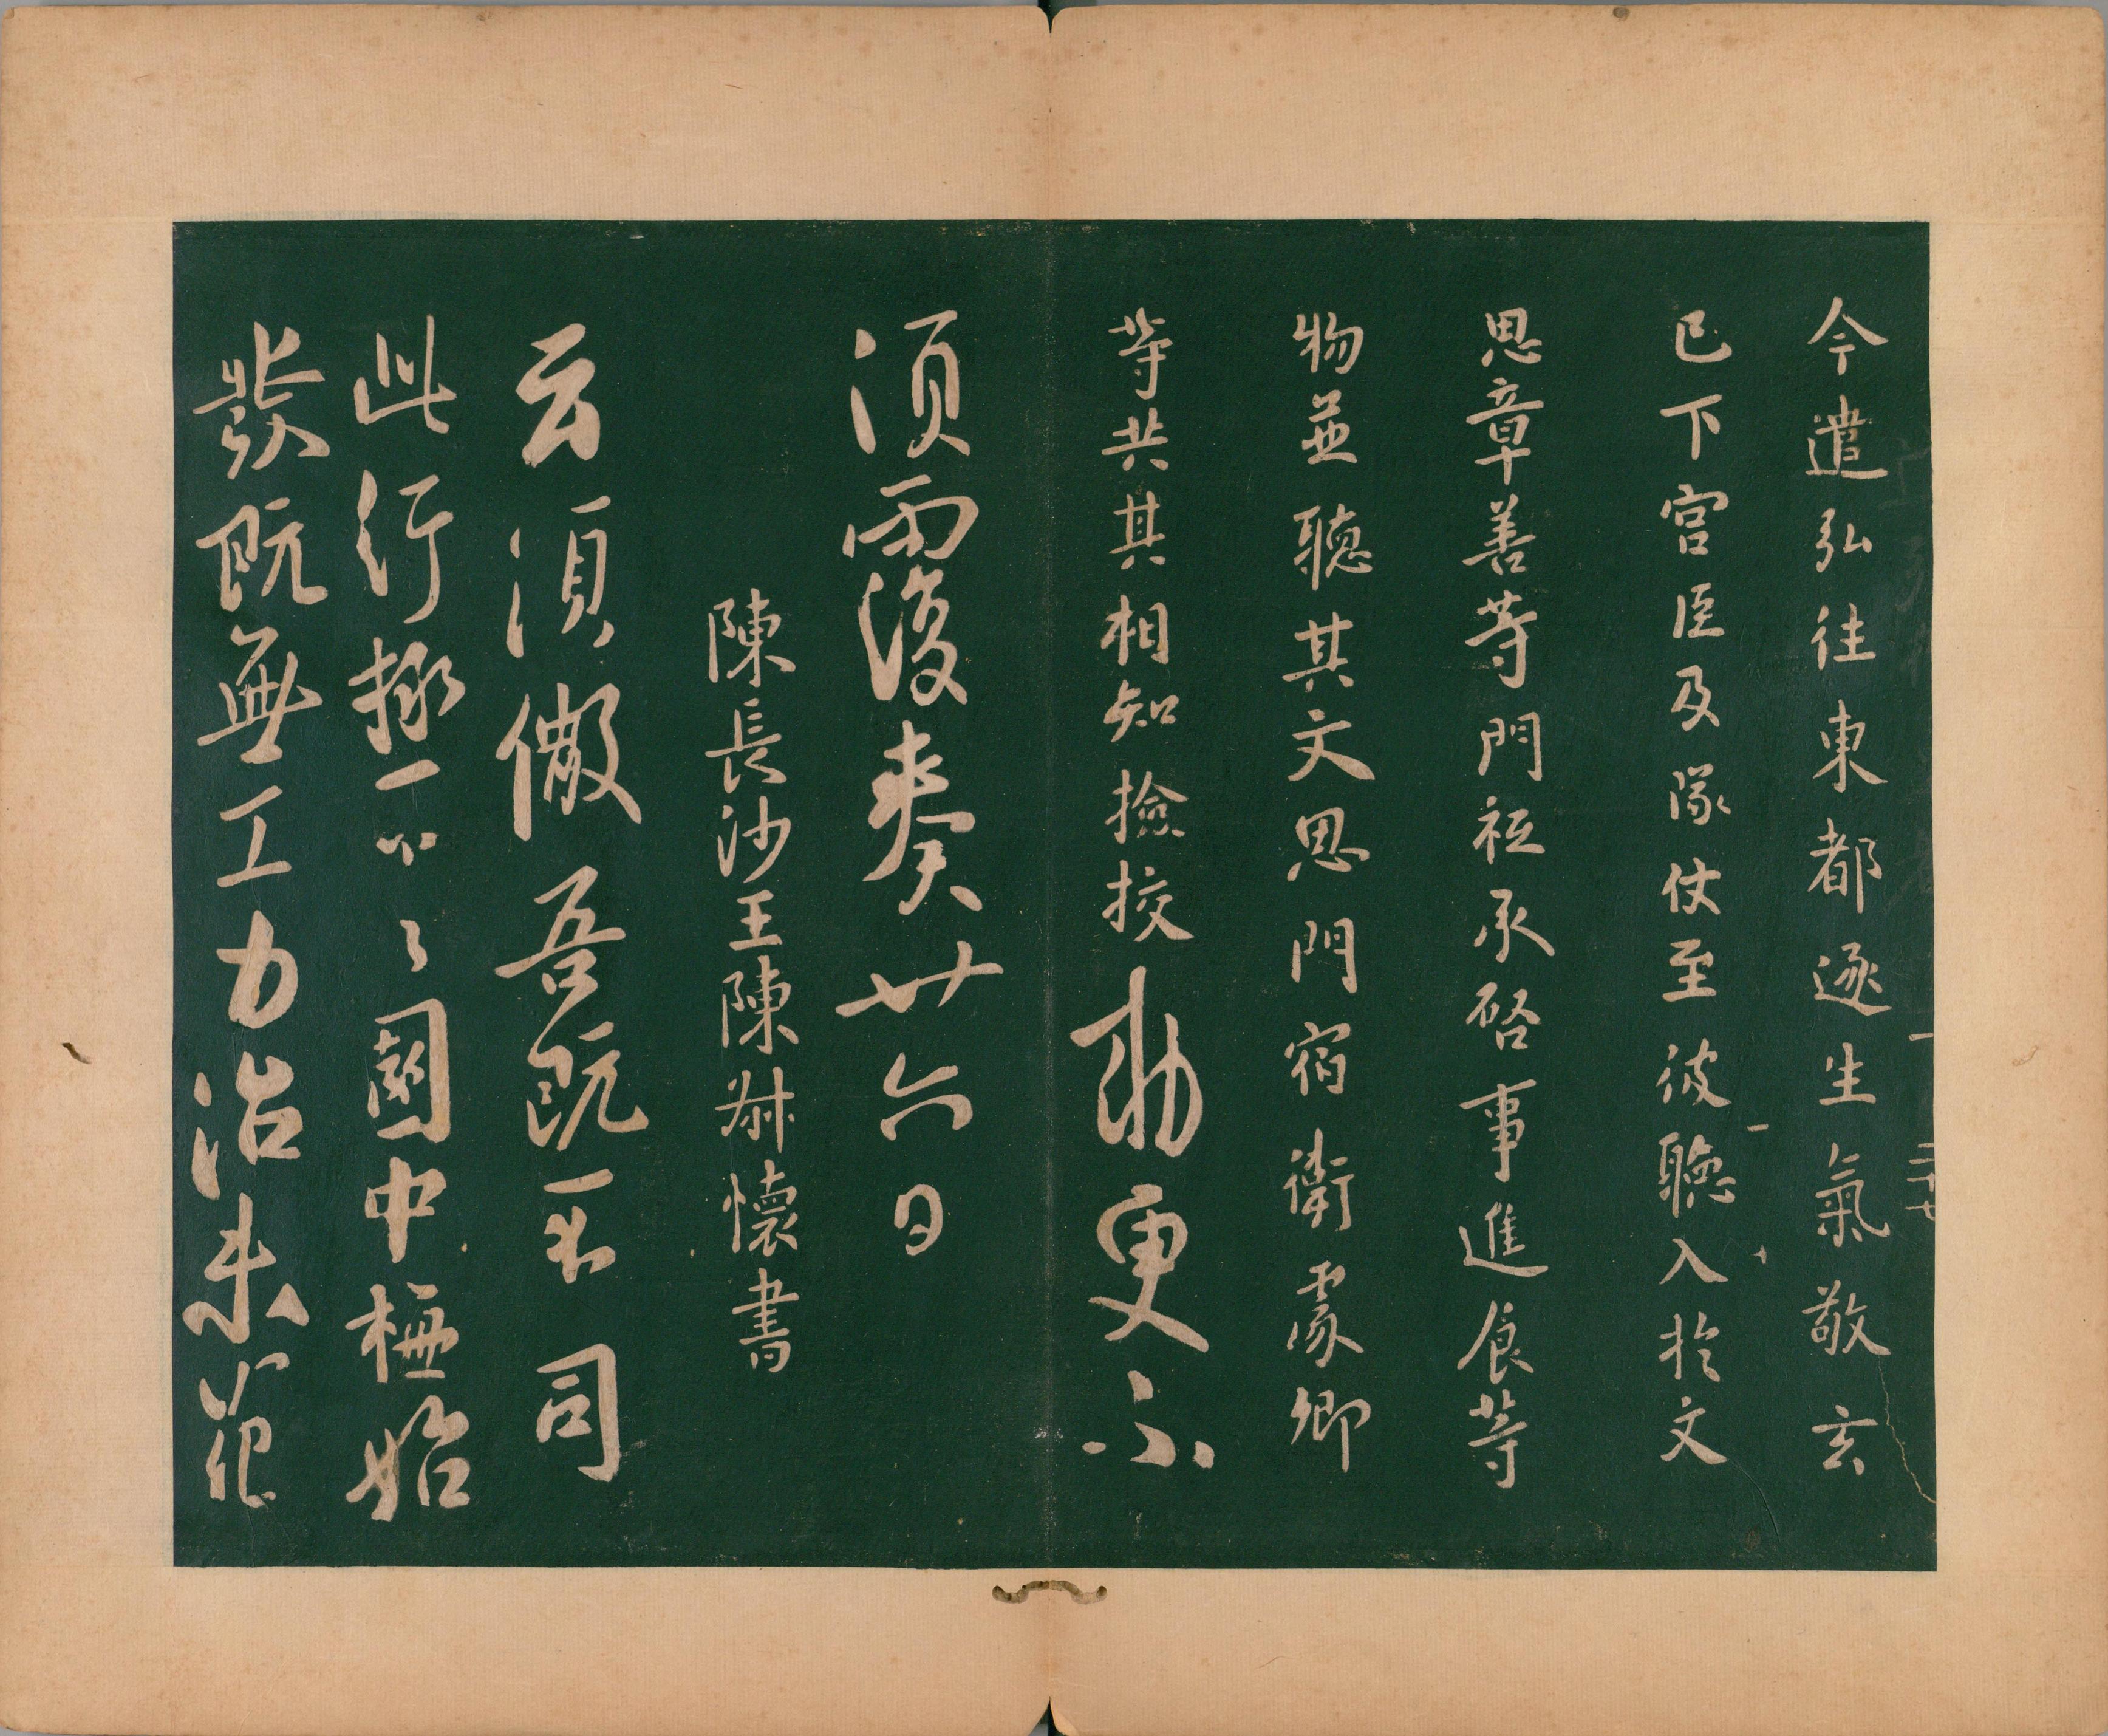 今遣弘往東都逐生氣敬玄
已下宮臣及隊仗至彼聽入於文
思章善等門祗承啓事進食等
物並聽其文思門宿衛處卿
等共其相知撿挍勅更不
須覆奏廿六日
陳長沙王陳叔懷書
云須儆吾既不司
此行極不小々園中極始
裝既無工力治未
二十七